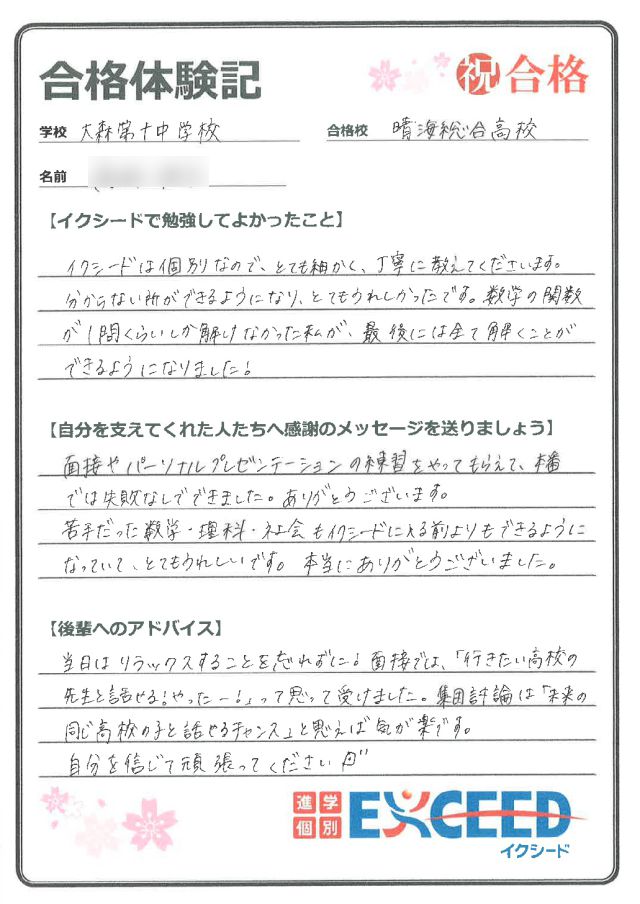 合格体験記
祝合格
学校 大森第十中学校
合格校 晴海総合高校
名前
【イクシードで勉強してよかったこと】
イクシードは個別なので、とても細かく、丁寧に教えてくださいます。
分からない所ができるようになり、とてもうれしかったです。数学の関数
が1問くらいしか解けなかった私が、最後には全て解くことが
できるようになりました!
【自分を支えてくれた人たちへ感謝のメッセージを送りましょう】
面接やパーソナルプレゼンテーションの練習をやってもらえて、本番
では失敗なしでできました。ありがとうございます。
苦手だった数学・理科・社会もイクシードに入る前よりもできるように
なっていて、とてもうれしいです。本当にありがとうございました。
【後輩へのアドバイス】
当日はリラックスすることを忘れずに!面接では、「行きたい高校の
先生と話せる!やったー!」って思って受けました。集団討論は「未来の
同じ高校の子と話せるチャンス」と思えば気が楽です。
自分を信じて頑張ってください
進学
個別
EXCEED
イクシード